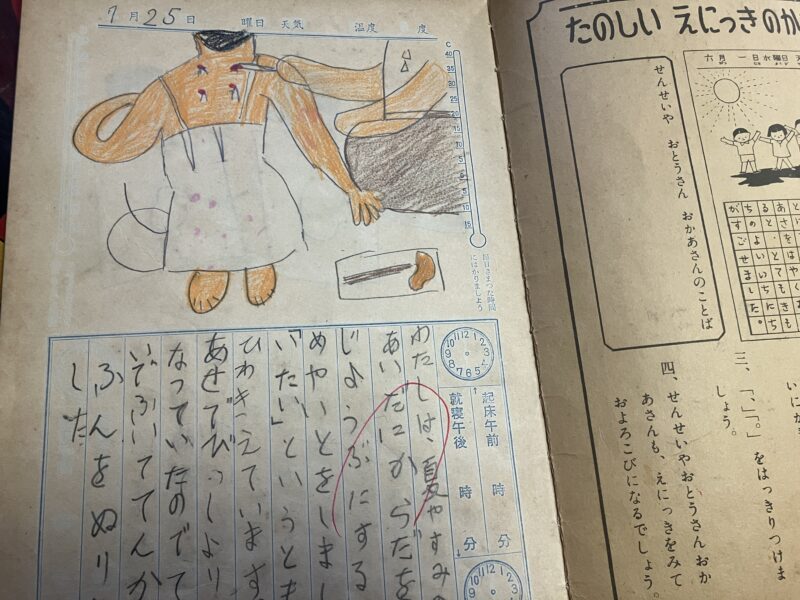 7月25日 曜日 天気 温度 度
C
40
35
30
25
20
15
10
5
0
5
10
15
毎日きまった時間
にはかりましょう
起床午前 時 分
就寝午後 時 分
わたしは、夏やすみの
あいだにからだを
じょうぶにする
めやいとをしまし
「いたい」というとき
ひわきこえています
あせでびっしより
なっていたのでて
いでふいててんか
ふんをぬりし
した
たのしい えにっきのか
六月 一日 水曜日
せんせいや おとうさん おかあさんのことば
ると、とてもきも
ちのよいいちにち
がすごせました。
三、「、」「。」をはっきりつけま
しょう。
四、せんせいやおとうさん おか
あさんも、えにっきをみて
およろこびになるでしょう。